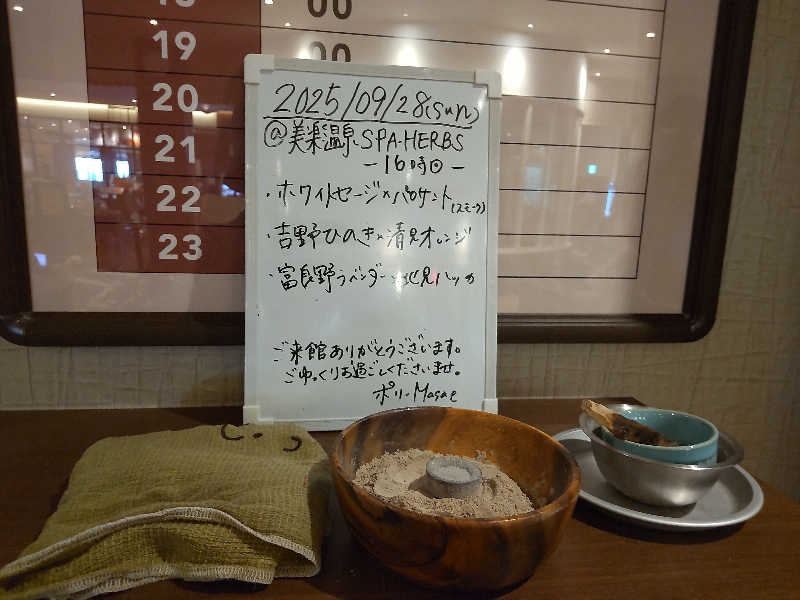 18
00
19
00
20
21
22
23
2025/09/28(sun)
@美楽温泉 SPA-HERBS
-16時回-
・ホワイトセージ×パロサント(スモーク)
・吉野ひのき×清見オレンジ
・富良野ラベンダー×北見ハッカ
ご来館ありがとうございます。
ごゆっくりお過ごしくださいませ。
ポリーMasae